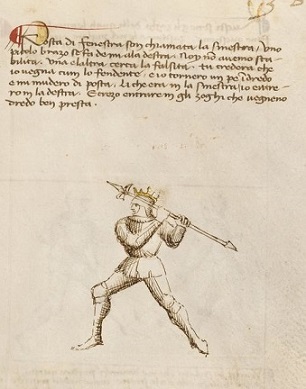 Posta di fenestra son chiamata la sinestra / uno
picolo brazo se fa de mi ala destra. Noy nō avemo sta-
bilita. Una e laltra cerca la falsita. Tu crederai che
io vegna cum lo fendente. e io tornerò un pe indredo
e me mudero di posta. Li che era in la sinestra / io entre-
ro in la destra. E crezo entrare in gli zoghi che vegneno
dredo ben presta.